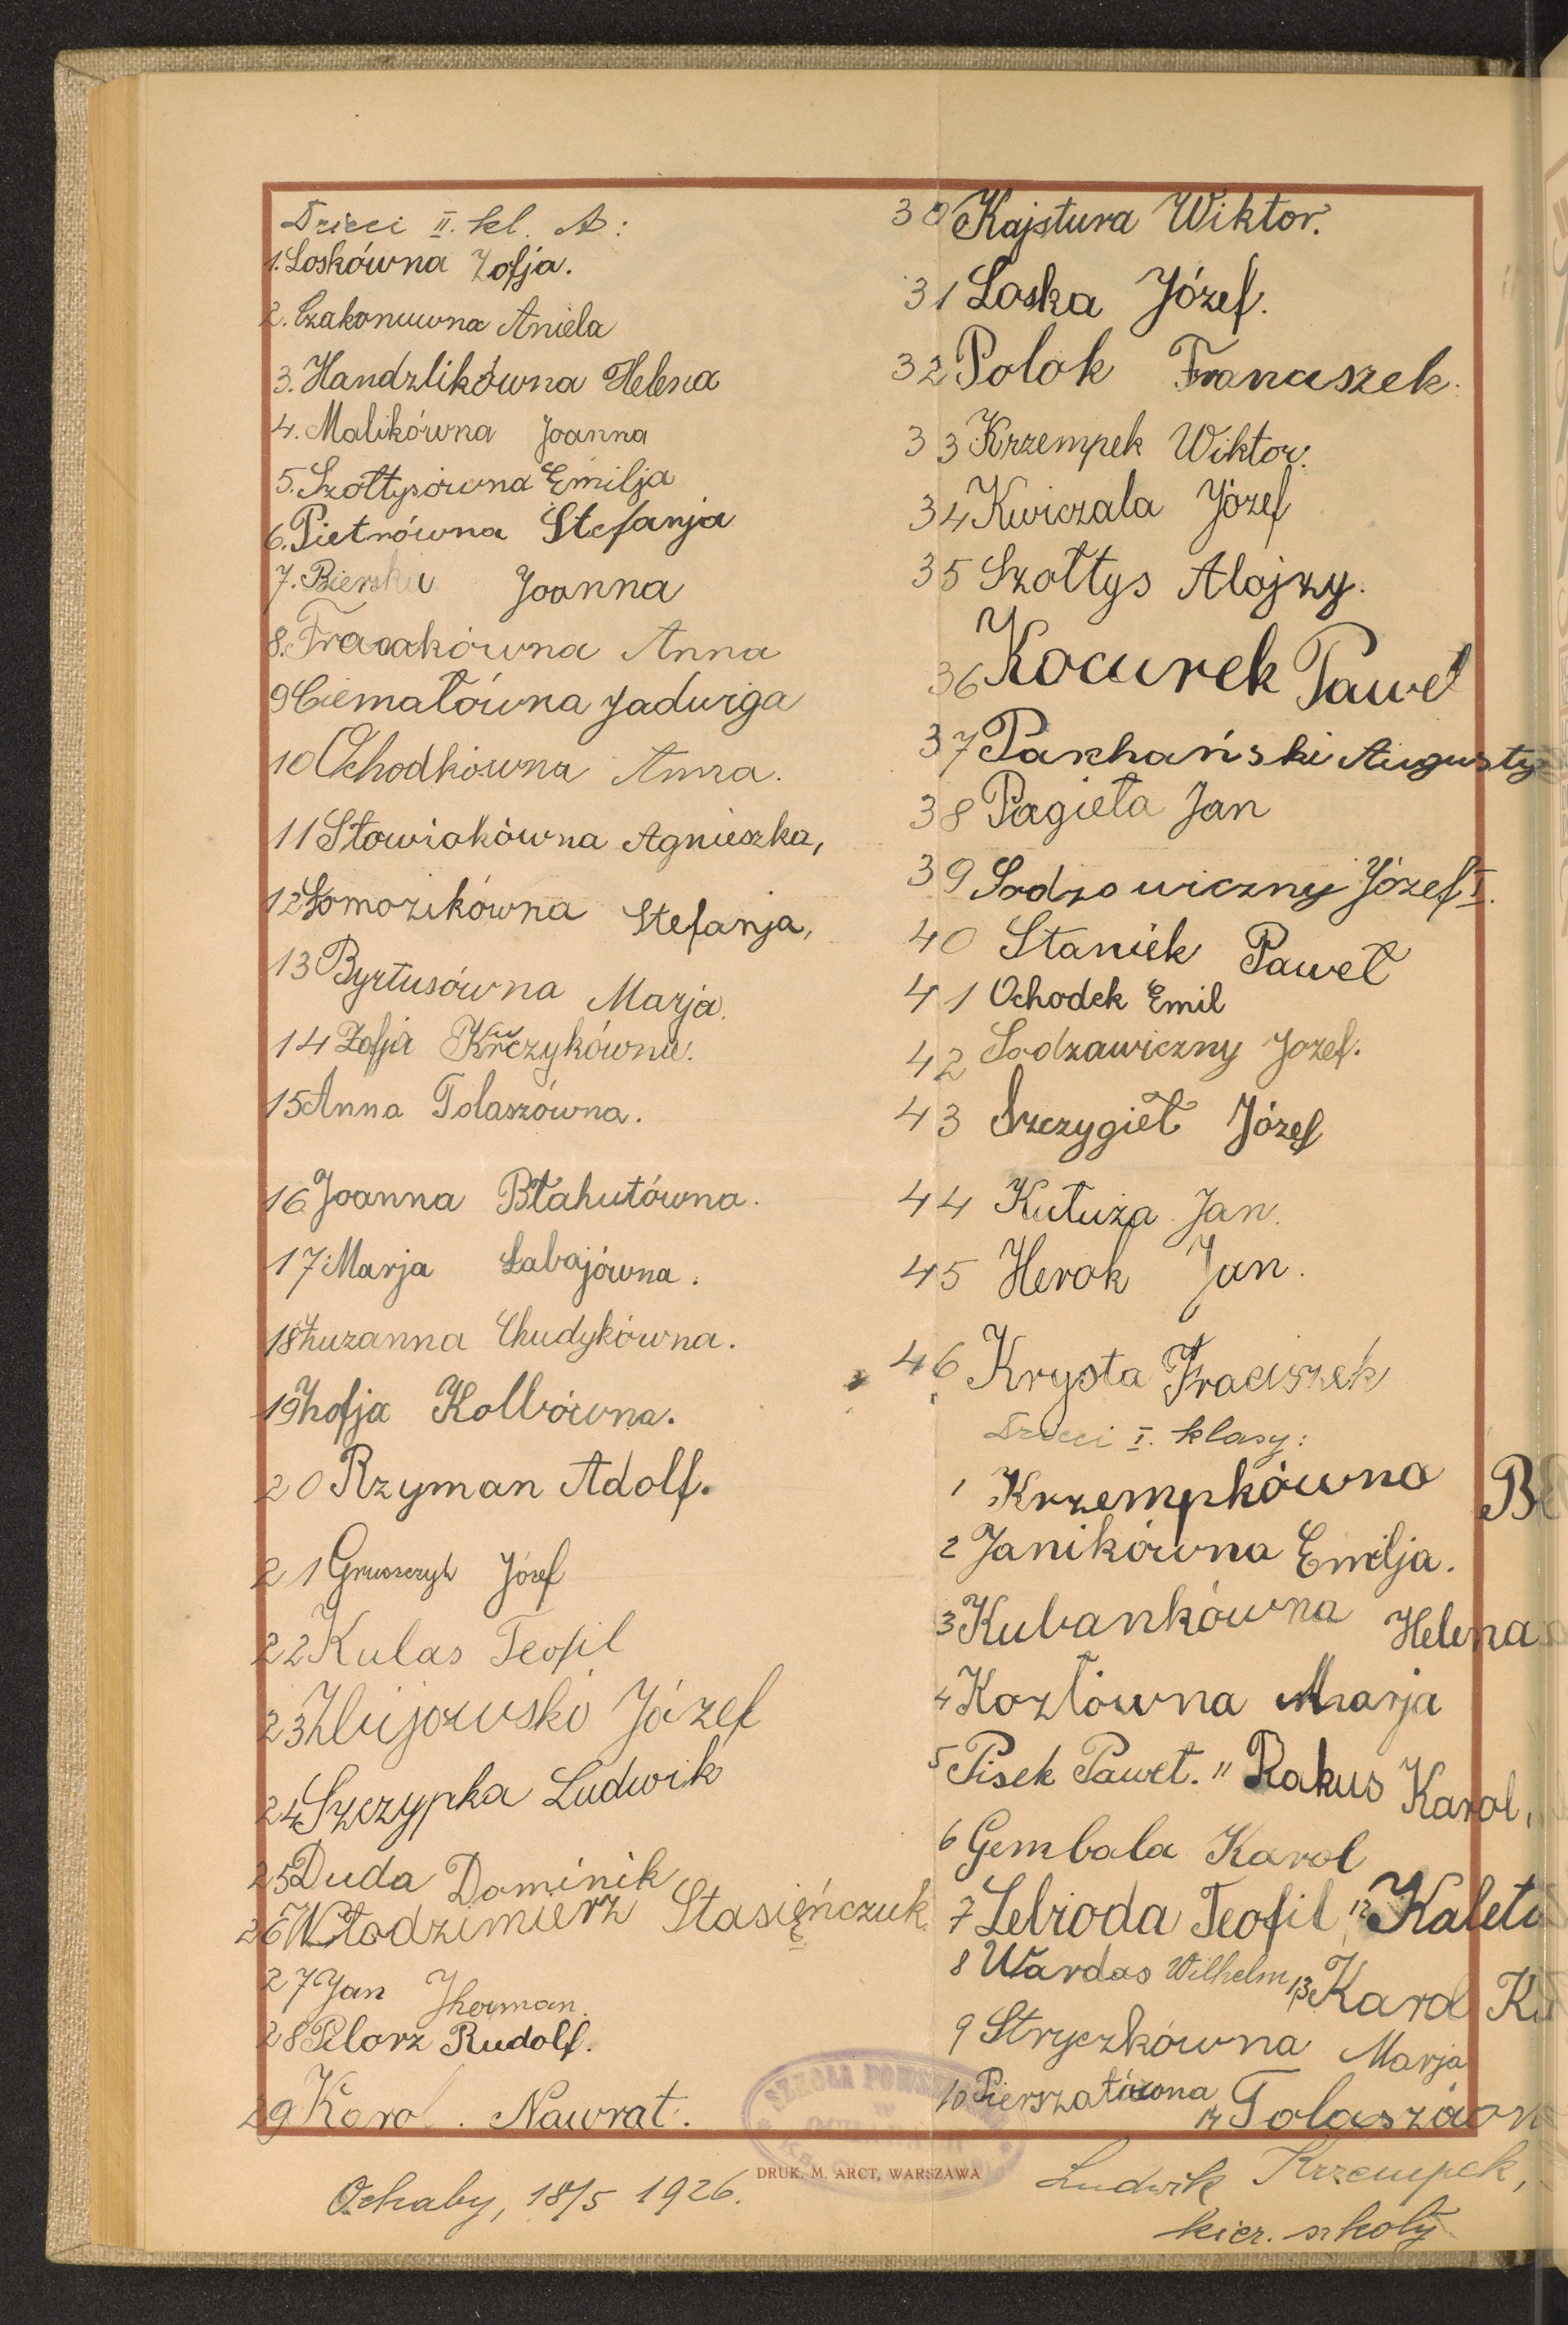 Dzieci II. kl. A:
1. Loskówna Zofja.
2. Czakonuwna Aniela
3. Handzlikówna Helena
4. Malikówna Joanna
5. Szołtysówna Emilja
6. Pietrówna Stefanja
7. Bierska Joanna
8. Anna
9 Ciemałówna Jadwiga
10 Ochodkówna Anna.
11 Słowiakówna Agnieszka,
12 Łomozikówna Stefanja,
13 Byrtusówna Marja.
14 Zofja Krczykówna.
15 Anna Tolaszówna.
16 Joanna Błahutówna.
17 Marja Łabajówna.
18 Zuzanna Chudykówna.
19 Zofja Kolbówna.
20 Rzyman Adolf.
21 Gruszczyk Józef
22 Kulas Teofil
23 Zbijowski Józef
24 Szczypka Ludwik
25 Duda Dominik
26 Włodzimierz Stasięńczuk
27 Jan Jherman.
28 Pilarz Rudolf.
29 Karol. Nawrat.
30 Kajstura Wiktor.
31 Loska Józef.
32 Polok Franciszek.
33 Krzempek Wiktor.
34 Kwiczala Józef
35 Szołtys Alojzy.
36 Kocurek Paweł
37 Parchański Augusty
38 Pagieła Jan
39 Sodzowiczny Józef I.
40 Staniek Paweł
41 Ochodek Emil
42 Sodzawiczny Jozef.
43 Szczygieł Józef
44 Kutuża Jan.
45 Herok Jan.
46 Krysta Fraciszek
Dzieci I. klasy:
1 Krzempkówna
2 Janikówna Emilja.
3 Kubankówna Helena
4 Kozłówna Marja
5 Pisek Paweł. 11 Rakus Karol,
6 Gembala Karol
7 Lebioda Teofil 12 Kaleta
8 Wardas Wilhelm 13 Karol
9 Stryczkówna Marja
10 Pierszałówna
14 Tolaszówn
SZKOŁA POWSZ
DRUK. M. ARCT, WARSZAWA
Ochaby, 18/5 1926.
Ludwik Krzempek,
kier. szkoły